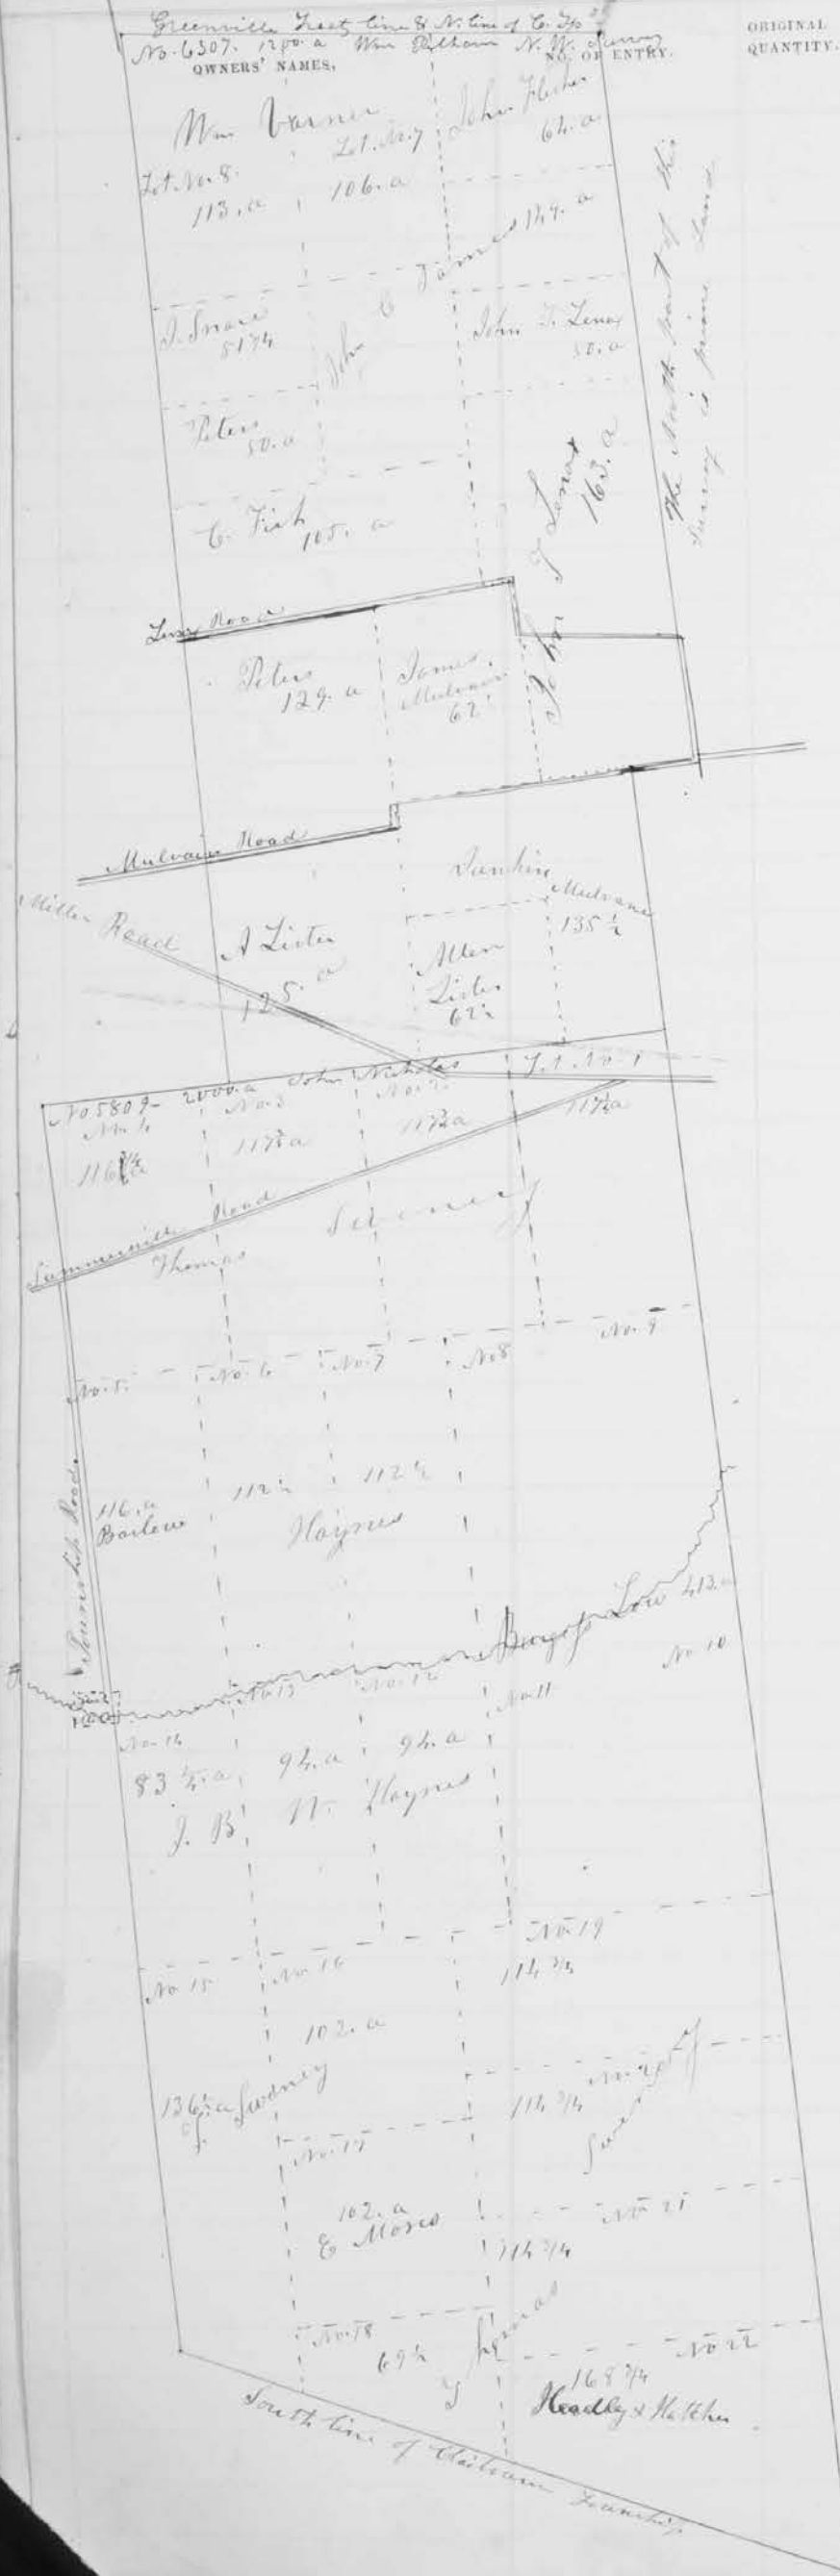 Greenville Treaty line & N. line of C. Tp
No. 6307. 1280. a Wm Pelham N. W. Survey
OWNERS' NAMES.
NO. OF ENTRY.
ORIGINAL
QUANTITY.
Wm Varner
Lot. No. 8.
113. a
Lot. No. 7
106. a
John Flecher
64. a
John C James 149. a
J. Snare
51 3/4
John F. Lenox
50. a
Peters
50. a
C. Fish
105. a
John F Lenox
163. a
The North part of this
Survey is prime Land
Road
Peters
129. a
James
Mulvain
62
Mulvain Road
Miller Road
Mulvane
135 1/2
A Lister
125. a
Allen
Lister
62 1/2
No 5809- 2000. a John Nicholas
Lot. No. 1
No. 4
116 3/4 a
No. 3
117 1/2 a
No. 2
117 1/2 a
117 1/2 a
Summerville Road
Thomas
No. 5.
No. 6
No. 7
No 8
No. 9
Township Road
116. a
Barlow
112 1/2
112 1/2
Haynes
Low 413. a
No 10
No 14
No 13
No. 12
No 11
83 1/4. a
94. a
94. a
J. B. N. Haynes
No 15
No 16
No. 19
102. a
114 3/4
136 1/2 a
No. 20
114 3/4
No. 17
102. a
E Moses
No 21
114 3/4
No. 18
69 1/2
Thomas
No 22
168 3/4
Headley & Hatcher
South line of Claibourn Township